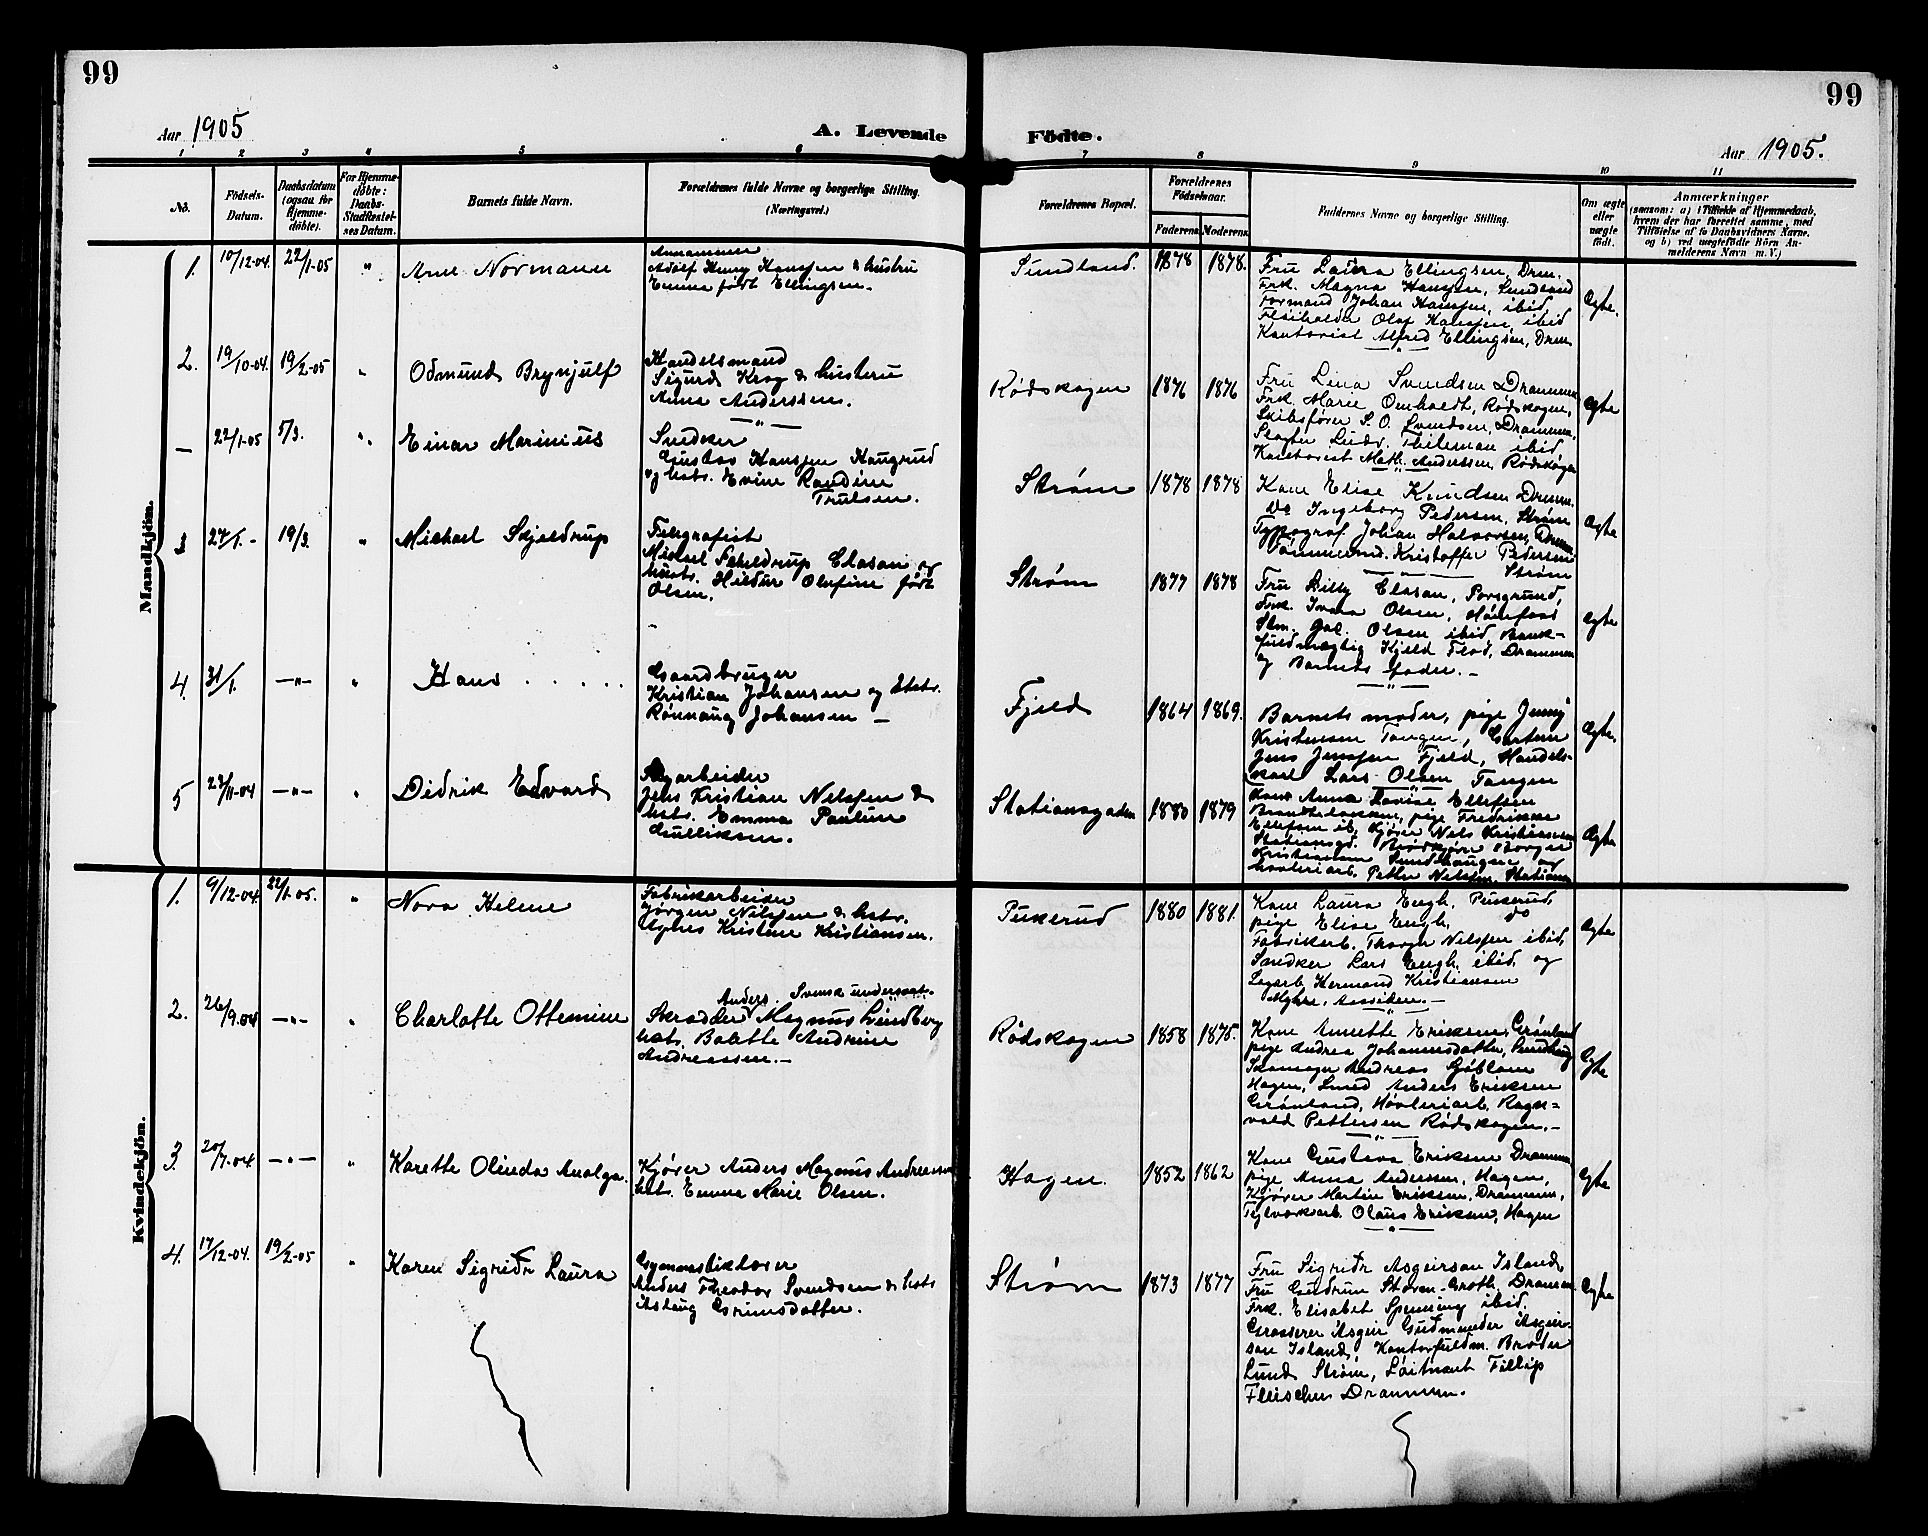 99
99
Aar 1905
A. Levende
Födte.
Aar 1905.
1 2 3 4 5 6 7 8 9 10 11
No.
Födsels-
Datum.
Daabsdatum
(ogsaa for
Hjemme-
döbte).
For Hjemme-
döbte:
Daabs-
Stadfæstel-
ses Datum.
Barnets fulde Navn.
Forældrenes fulde Navne og borgerlige Stilling.
(Næringsvei.)
Forældrenes Bopæl.
Forældrenes
Födselsaar.
Faderens
Moderens
Faddernes Navne og borgerlige Stilling.
Om ægte
eller
uægte
födt.
Anmærkninger
(saasom: a) i Tilfælde af Hjemmedaab,
hvem der har forrettet samme, med
Tilföielse af to Daabsvidners Navne,
og b) ved uægtefödte Börn An-
melderens Navn m. V.)
Mandkjön.
1. 10/12-04. 22/1-05 " Arne Normann
Adolf Henry Hanssen & hustru
Emma født Ellingsen.
Sundland. 1878 1878.
Fru Laura Ellingsen, Drm.
Frk. Magna Hanssen, Sundland
Formand Johan Hanssen, ibid
Olaf Hanssen, ibid
Kontorist Alfred Ellingsen, Drm
Ægte.
2. 19/10-04. 19/2-05 " Odmund Brynjulf
Handelsmand
Sigurd Krog & hustru
Anna Anderssen.
Rødskogen 1876 1876
Fru Lina Svendsen Drammen
Frk. Marie Omholdt, Rødskogen,
Skibsfører S. O. Svendsen, Drammen,
Slagter Ludv. Thileman ibid
Kontorist Math. Anderssen, Rødskogen
Ægte
— 22/1-05 5/3. " Einar Marinius
Snedker
Gustav Hanssen Haugrud
og hstr. Evine Randine
Trulsen.
Strøm 1878 1878
Kone Elise Knudsen Dramm.
Do Ingeborg Pedersen, Strøm
Typograf Johan Halvorsen, Dramm
Tømmermd. Kristoffer Pedersen
Strøm
Ægte
3 27/1.- 19/3. " Michael Skjeldrup
Telegrafist
Michael Scheldrup Clasan og
hustr. Hildur Olefine født
Olsen.
Strøm 1877 1878
Fru Lilly Clasan, Porsgrund,
Frk. Ivara Olsen, Hønefoss
Stm. Jac. Olsen ibid, Bank-
fuldmægtig Kjeld Flod, Drammen
og Barnets fader.-
Ægte
4. 31/1. —"— " Hans . . . . .
Gaardbruger
Kristian Johansen og Hstr.
Rønnaug Johansen —
Fjeld 1864 1869.
Barnets moder, pige Jenny
Kristensen Tangen, Gartner
Jens Jenssen Fjeld, Handels-
karl Lars Olsen Tangen
Ægte.
5 23/11-04 —"— " Didrik Edvard
Jens Kristian Nilssen &
hstr. Emma Pauline
Gulliksen.
Stationsgaden 1880 1879
Kone Anna Lovise Ellefsen
pige Fredrikke
Ellefsen ib. Kjører Nils Kristiansen
Stationsgd.
Kristiansen Sundhaugen og
høvleriarb. Petter Nilssen, Stationsg
Ægte
Kvindekjön.
1. 9/12-04 22/1-05. " Nora Helene
Fabrikarbeider
Jørgen Nilssen & hstr.
Agnes Kristine Kristiansen.
Pukerud 1880 1881.
Kone Laura Engh, Pukerud,
pige Elise Engh. do
Fabrikarb. Thorger Nilssen ibid,
Snedker Lars Engh, ibid, og
Sagarb. Hermand Kristiansen
Myhre,
Ægte
2. 26/9.04 —"— " Charlotte Ottemine
Anders. Svensk undersaat.
Skrædder Magnus Lindberg
hstr. Bolette Andrine
Andreassen.—
Rødskogen 1858 1875.
Kone Annette Eriksen, Grønland
pige Andrea Johannesdatter,
Skomager Andreas Sjöblom
Hagen, Smed Anders Eriksen
Grønland, Høvleriarb. Ragn-
vald Pettersen Rødskogen.—
Ægte
3. 20/7-04. —"— " Karette Olinda Analga.
Kjører Anders Magnus Andreassen
hstr. Emma Marie Olsen.
Hagen. 1852 1862
Kone Gustava Eriksen Drammen
pige Anna Anderssen, Hagen,
Kjører Martin Eriksen, Drammen,
Teglverksarb. Olaus Eriksen, Hagen
Ægte
4. 17/12-04. 19/2-05 " Karen Sigridr Laura
Gymnastiklærer
Anders Theodor Svendsen & hstr
Aslaug Grimsdatter.
Strøm 1873 1877
Fru Sigridr Asgeirson Island,
Fru Gudrun Støren-Groth, Drammen
Frk. Elisabet Spenning ibid.
Grosserer Asgeir Gudmunder Asgeir-
son Island, Kontorfuldm. Broder
Lund, Strøm, Löitnant Fillip
Fleischer Drammen.
Ægte